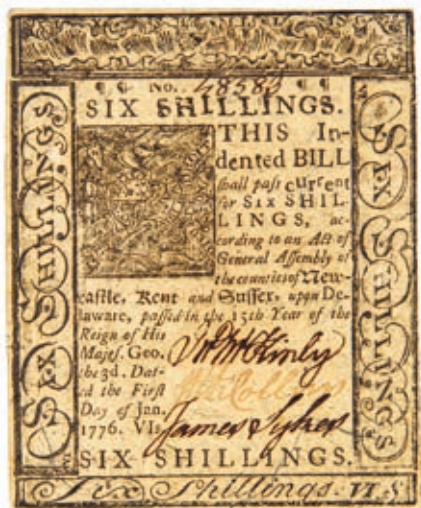 No. 48583
SIX SHILLINGS.
THIS In-
dented BILL
shall pass current
for SIX SHIL-
LINGS, ac-
cording to an Act of
General Assembly of
the counties of New-
castle, Kent and Sussex, upon De-
laware, passed in the 15th Year of the
Reign of His
Majest. Geo.
the 3d. Dat-
ed the First
Day of Jan.
1776. VIs.
SIX SHILLINGS.
James Sykes
Six Shillings. VI. S
SIX SHILLINGS
SIX SHILLINGS